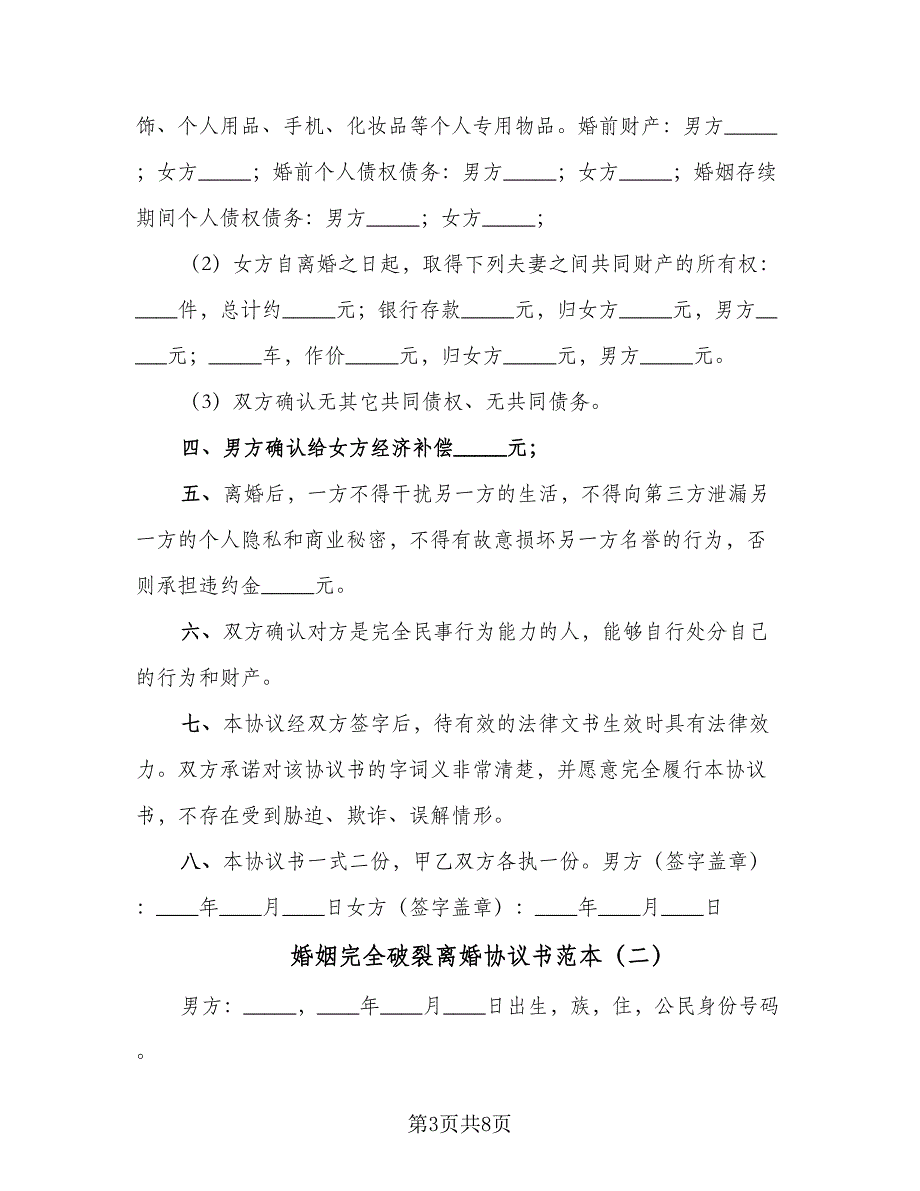 饰、个人用品、手机、化妆品等个人专用物品。婚前财产：男方_____
；女方_____；婚前个人债权债务：男方_____；女方_____；婚姻存续
期间个人债权债务：男方_____；女方_____；
（2）女方自离婚之日起，取得下列夫妻之间共同财产的所有权：
____件，总计约_____元；银行存款_____元，归女方_____元，男方__
___元；_____车，作价_____元，归女方_____元，男方_____元。
（3）双方确认无其它共同债权、无共同债务。
四、男方确认给女方经济补偿_____元；
五、离婚后，一方不得干扰另一方的生活，不得向第三方泄漏另
一方的个人隐私和商业秘密，不得有故意损坏另一方名誉的行为，否
则承担违约金_____元。
六、双方确认对方是完全民事行为能力的人，能够自行处分自己
的行为和财产。
七、本协议经双方签字后，待有效的法律文书生效时具有法律效
力。双方承诺对该协议书的字词义非常清楚，并愿意完全履行本协议
书，不存在受到胁迫、欺诈、误解情形。
八、本协议书一式二份，甲乙双方各执一份。男方（签字盖章）
：____年____月____日女方（签字盖章）：____年____月____日
婚姻完全破裂离婚协议书范本（二）
男方：_____，____年____月____日出生，族，住，公民身份号码
。
第3页共8页